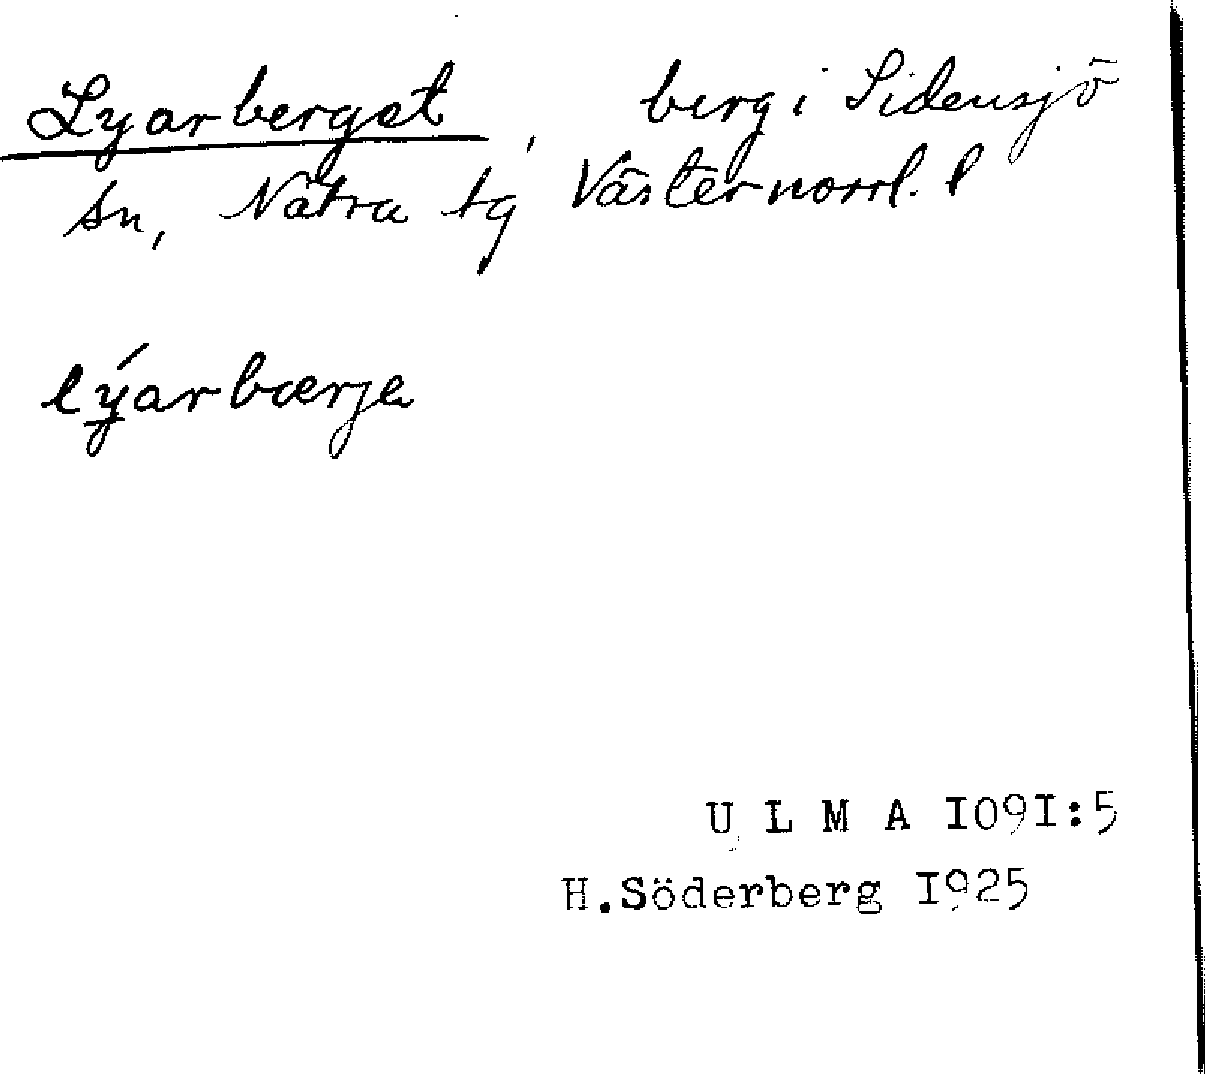 Lyarberget, berg i Sidensjö
sn, Nätra tg Västernorrl. l
lýarbærje
U L M A I09I:5
H.Söderberg I925